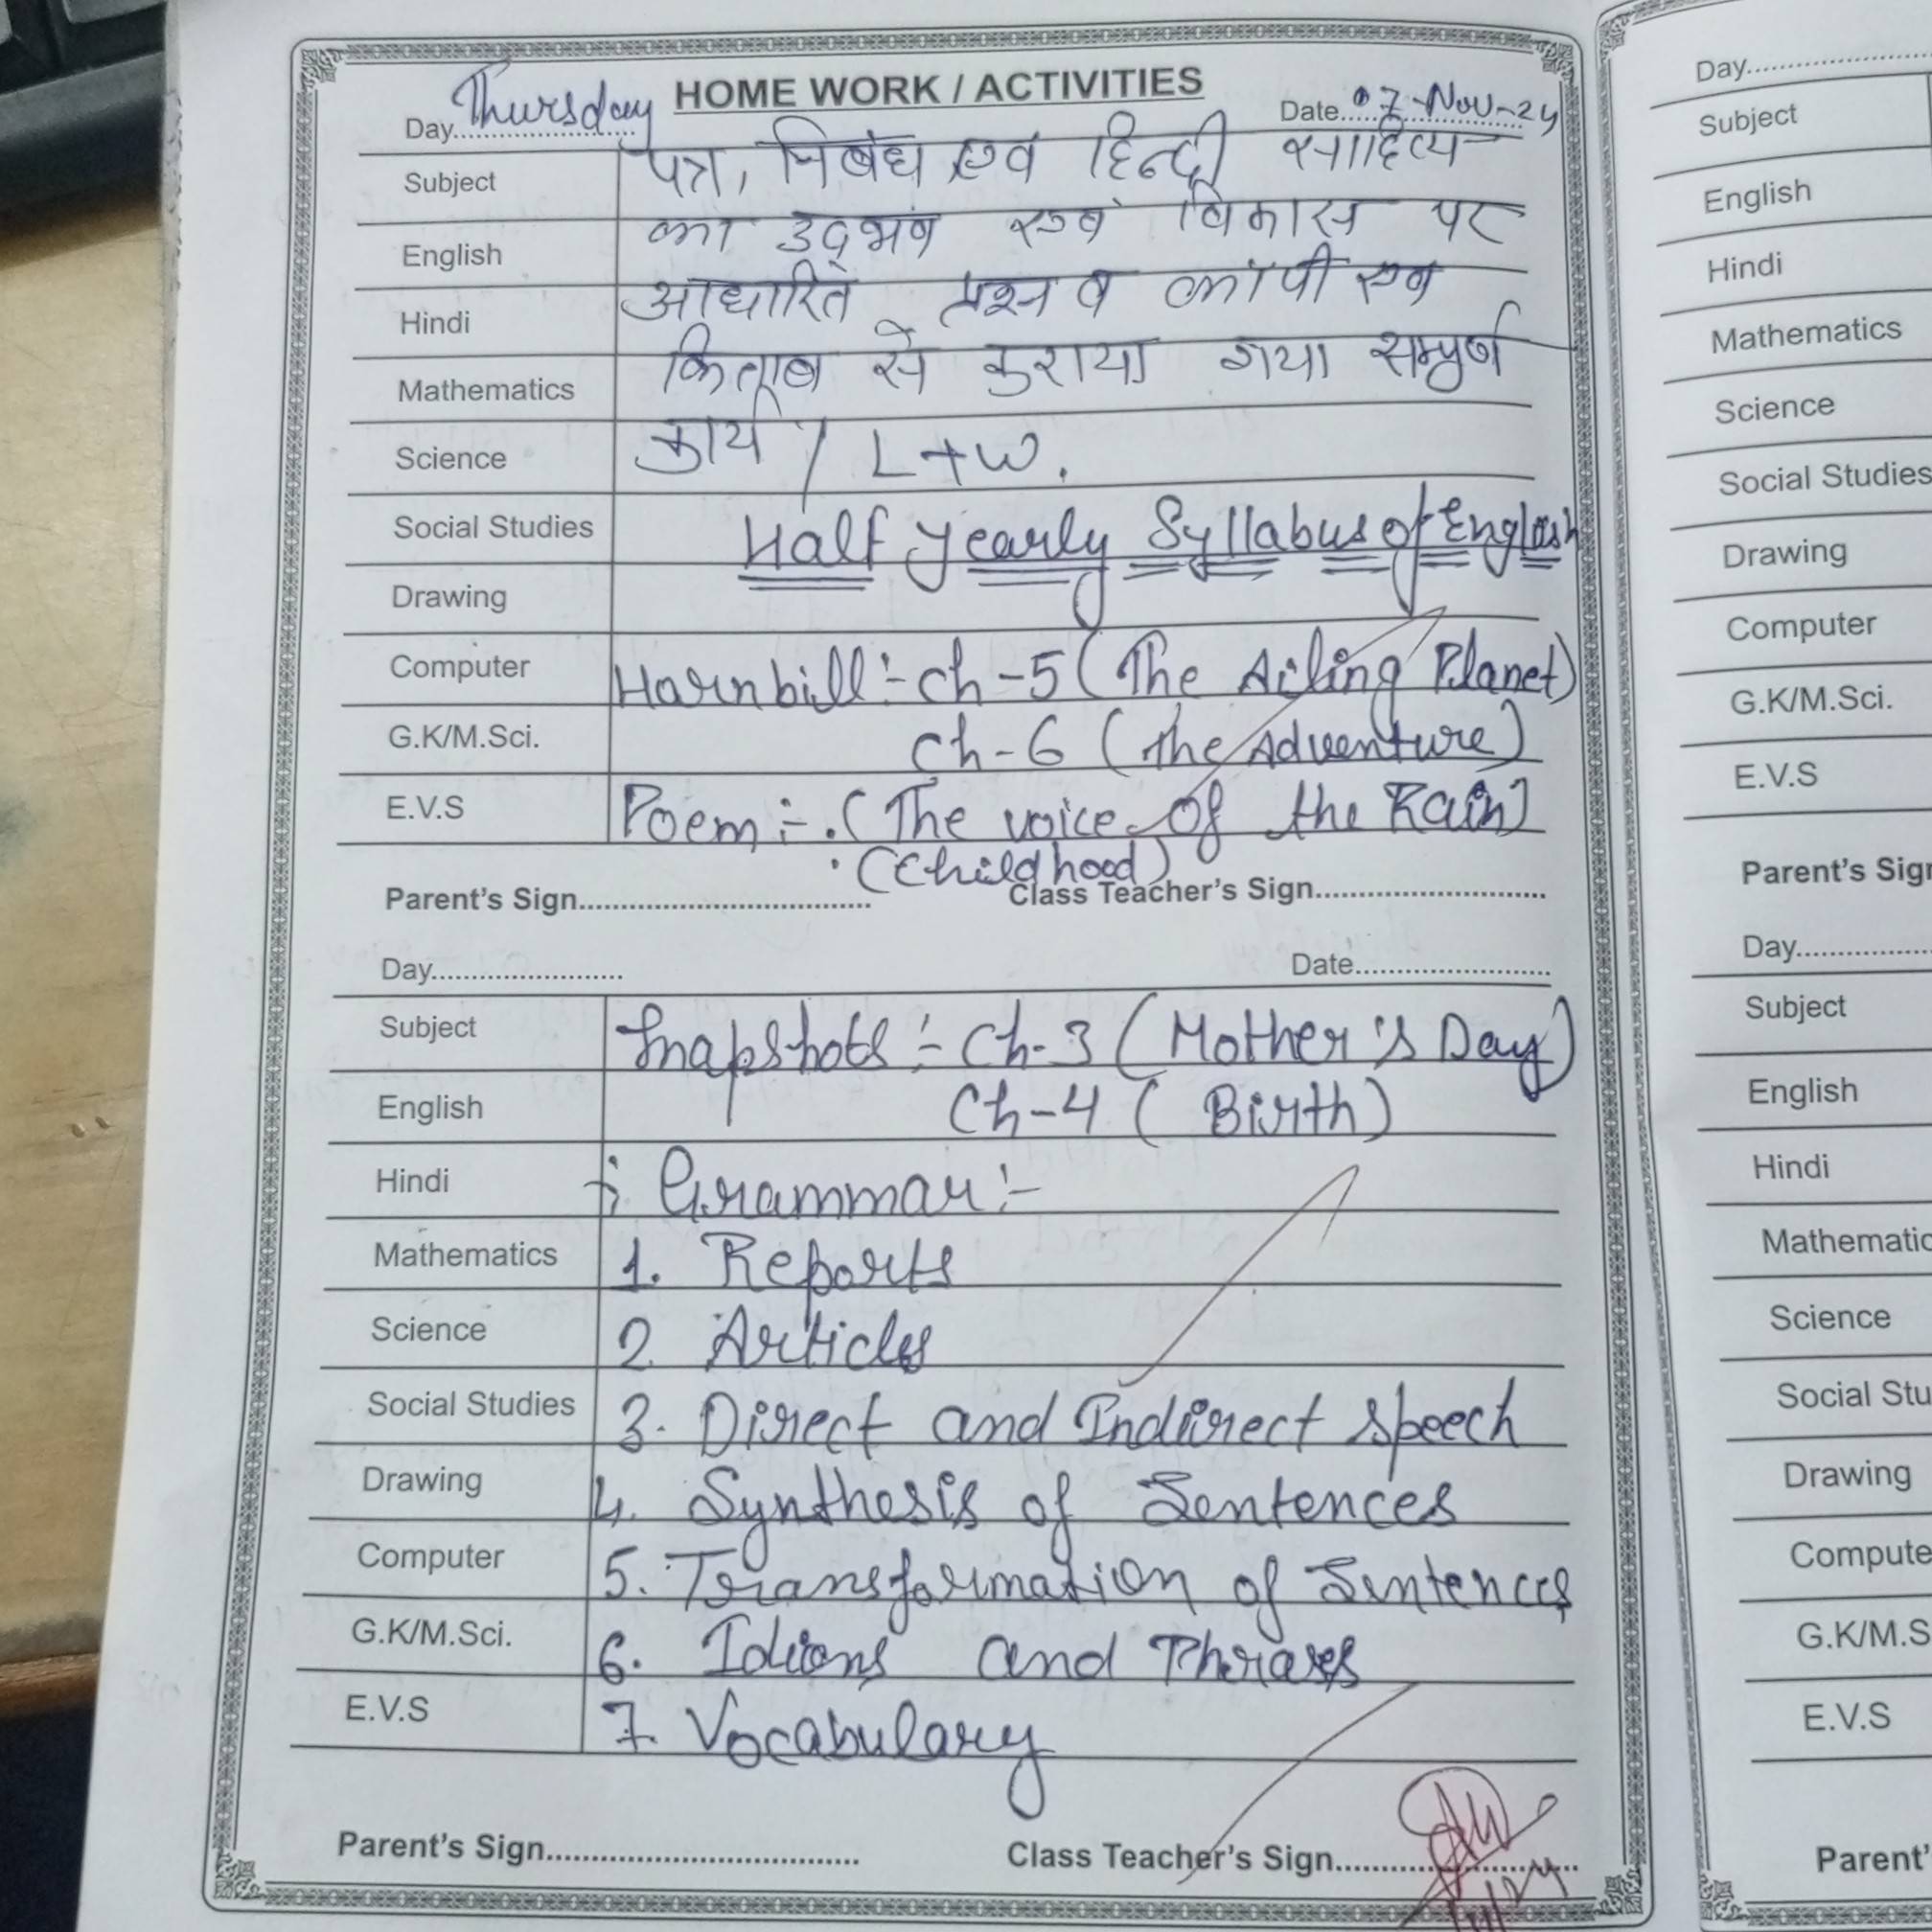 HOME WORK / ACTIVITIES
Day Thursday Date 07-Nov-24
Subject पत्र, निबंध एवं हिन्दी साहित्य
English का उद्भव एवं विकास पर
Hindi आधारित प्रश्न व कॉपी एवं
Mathematics किताब से कराया गया सम्पुर्ण
Science कार्य / L+W.
Social Studies Half yearly Syllabus of English
Drawing
Computer Hornbill :- Ch-5 (The Ailing Planet)
G.K/M.Sci. Ch-6 (The Adventure)
E.V.S Poem :- .(The voice of the Rain)
.(Childhood)
Parent's Sign Class Teacher's Sign
Day Date
Subject Snapshots :- Ch-3 (Mother's Day)
English Ch-4 (Birth)
Hindi Grammar :-
Mathematics 1. Reports
Science 2. Articles
Social Studies 3. Direct and Indirect speech
Drawing 4. Synthesis of Sentences
Computer 5. Transformation of Sentences
G.K/M.Sci. 6. Idioms and Phrases
E.V.S 7. Vocabulary
Parent's Sign Class Teacher's Sign
Day
Subject
English
Hindi
Mathematics
Science
Social Studies
Drawing
Computer
G.K/M.Sci.
E.V.S
Parent's Sign
Day
Subject
English
Hindi
Mathematic
Science
Social Stu
Drawing
Compute
G.K/M.S
E.V.S
Parent'